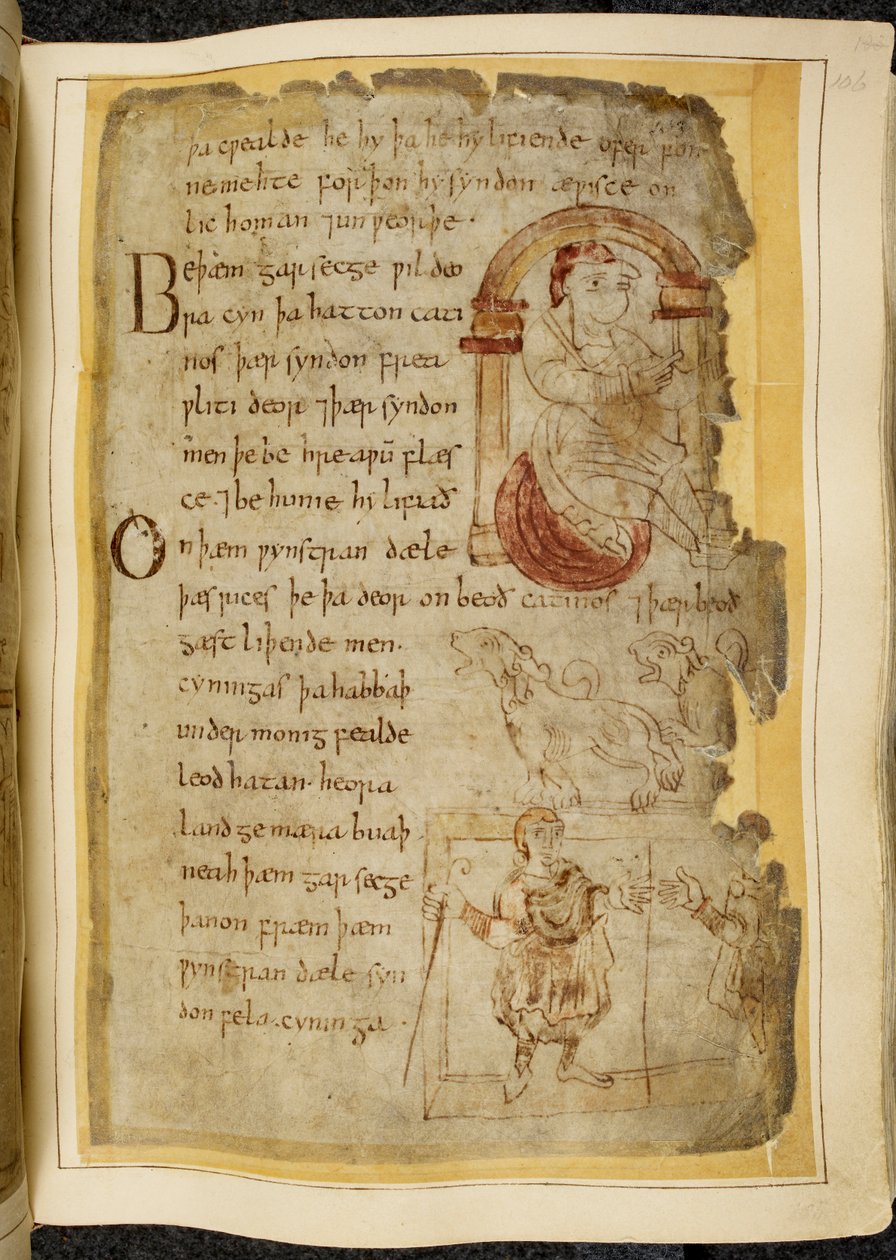 þa cƿealde he hy þa he hy lifiende ofer fon
ne mehte forþon hy syndon æƿisce on
lic homan ⁊ unƿeorþe·
Be þæm garsecge ƿildeo
ra cyn þa hatton cati
nos þær syndon frea
ƿliti deor ⁊ þær syndon
men þe be hreaƿū flæs
ce ⁊ be hunie hy lifiað
On þæm ƿynstran dæle
þæs rices þe þa deor on beoð catinos ⁊ þær beoð
gæst liþende men·
cyningas þa habbaþ
under monig fealde
leod hatan· heora
land gemæra buaþ
neah þæm garsecge
þanon fræm þæm
ƿynstran dæle syn
don fela· cyninga·
106